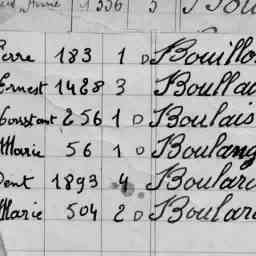 1336 3
erre 183 1 Bouillo
Ernest 1428 3 Boullai
Constant 256 1 Boulais
Marie 56 1 Boulang
1893 4 Boulard
Marie 504 2 Boular